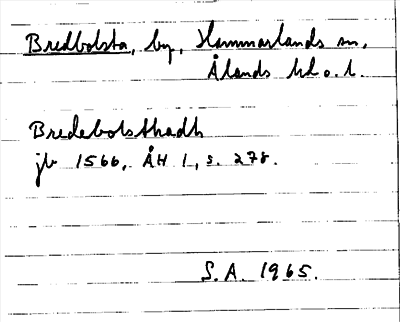 Bredbolsta, by, Hammarlands sn,
Ålands hd o. l.
Bredebolsthadh
jb 1566, ÅH 1, s. 278.
S.A. 1965.